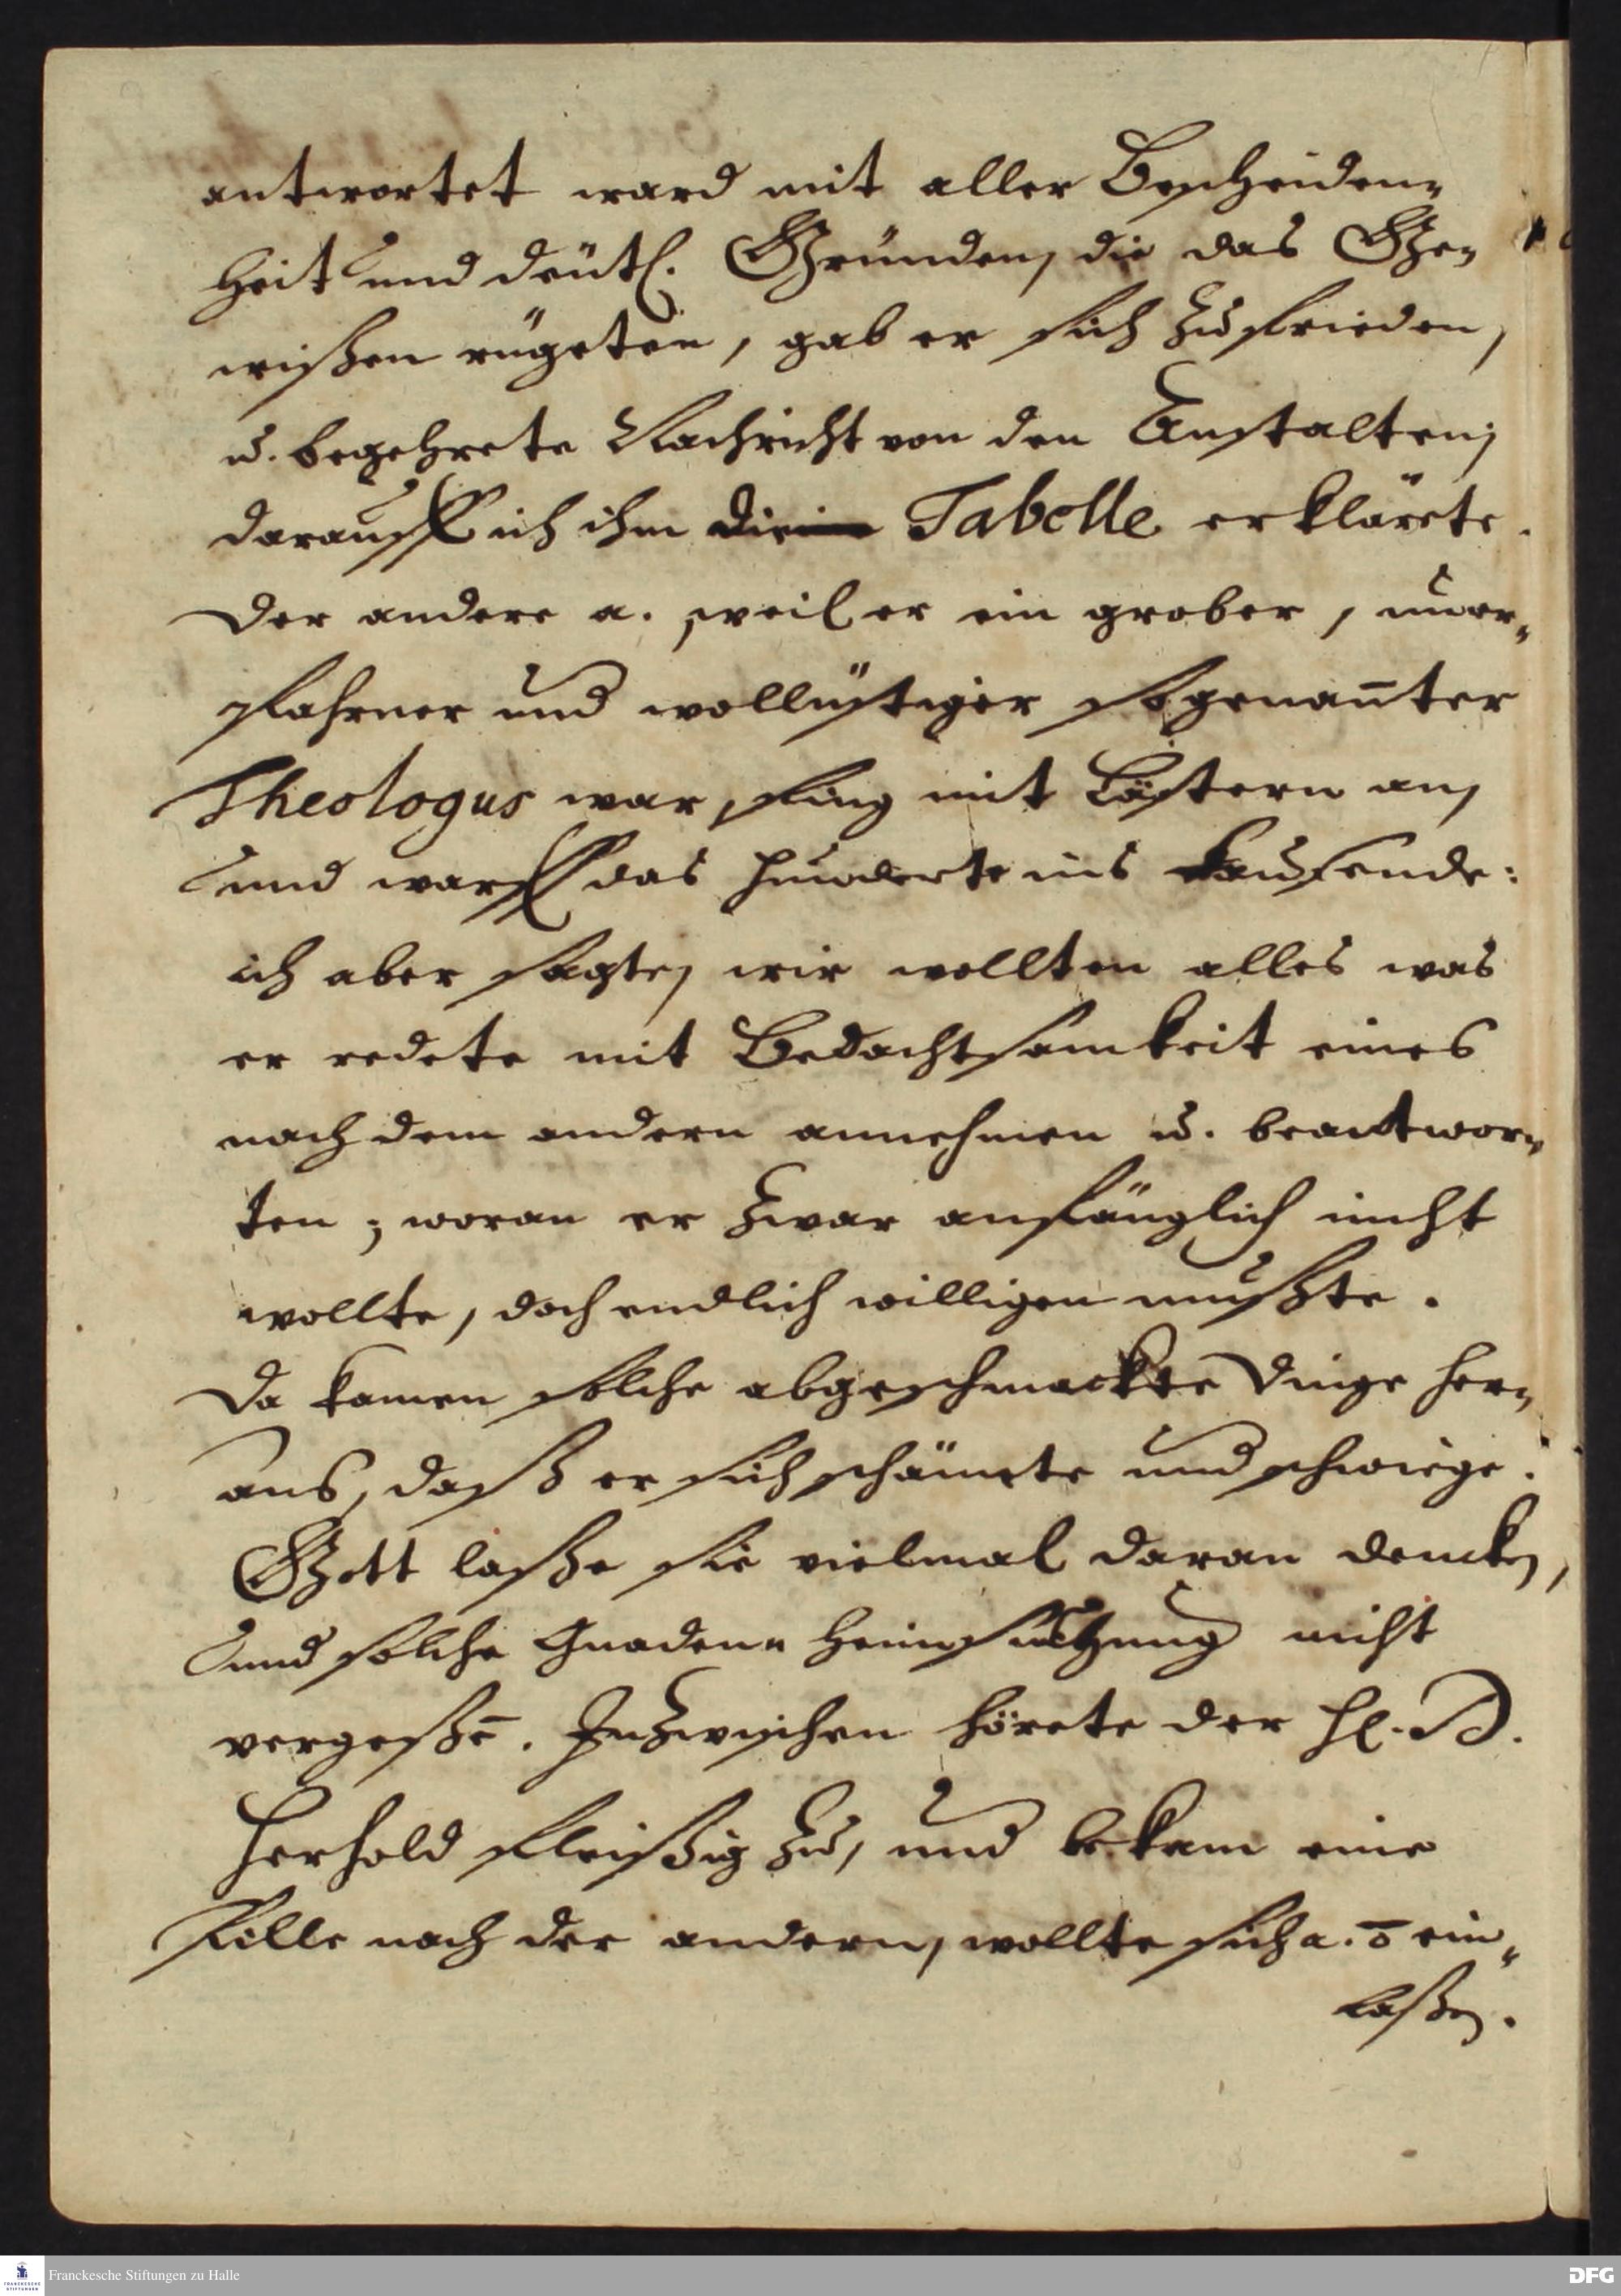 antwortet ward mit aller Bescheiden-
heit und deütl. Gründen, die das Ge-
wißen rügeten, gab er sich zufrieden,
u. begehrete Nachricht von den Anstalten;
darauff ich ihm die Tabelle erklärete.
Der andere a. weil er ein grober, uner-
fahrner und wollüstiger sogenañter
Theologus war, fing mit Lästern an,
und warff das hunderte ins tausende:
ich aber sagte, wir wollten alles was
er redete mit Bedachtsamkeit eines
nach dem andern annehmen u. beantwor-
ten; woran er zwar anfänglich nicht
wollte, doch endlich willigen mußte.
Da kamen solche abgeschmackte Dinge her-
aus, daß er sich schämete und schwiege.
Gott laße sie vielmal daran dencken,
und solche Gnaden-Heimsuchung nicht
vergeßē. Inzwischen hörete der Hl. D.
Herhold fleißig zu, und bekam eine
Pille nach der andern, wollte sich a. ō ein-
laßen.
Franckesche Stiftungen zu Halle
FRANCKESCHE STIFTUNGEN
DFG